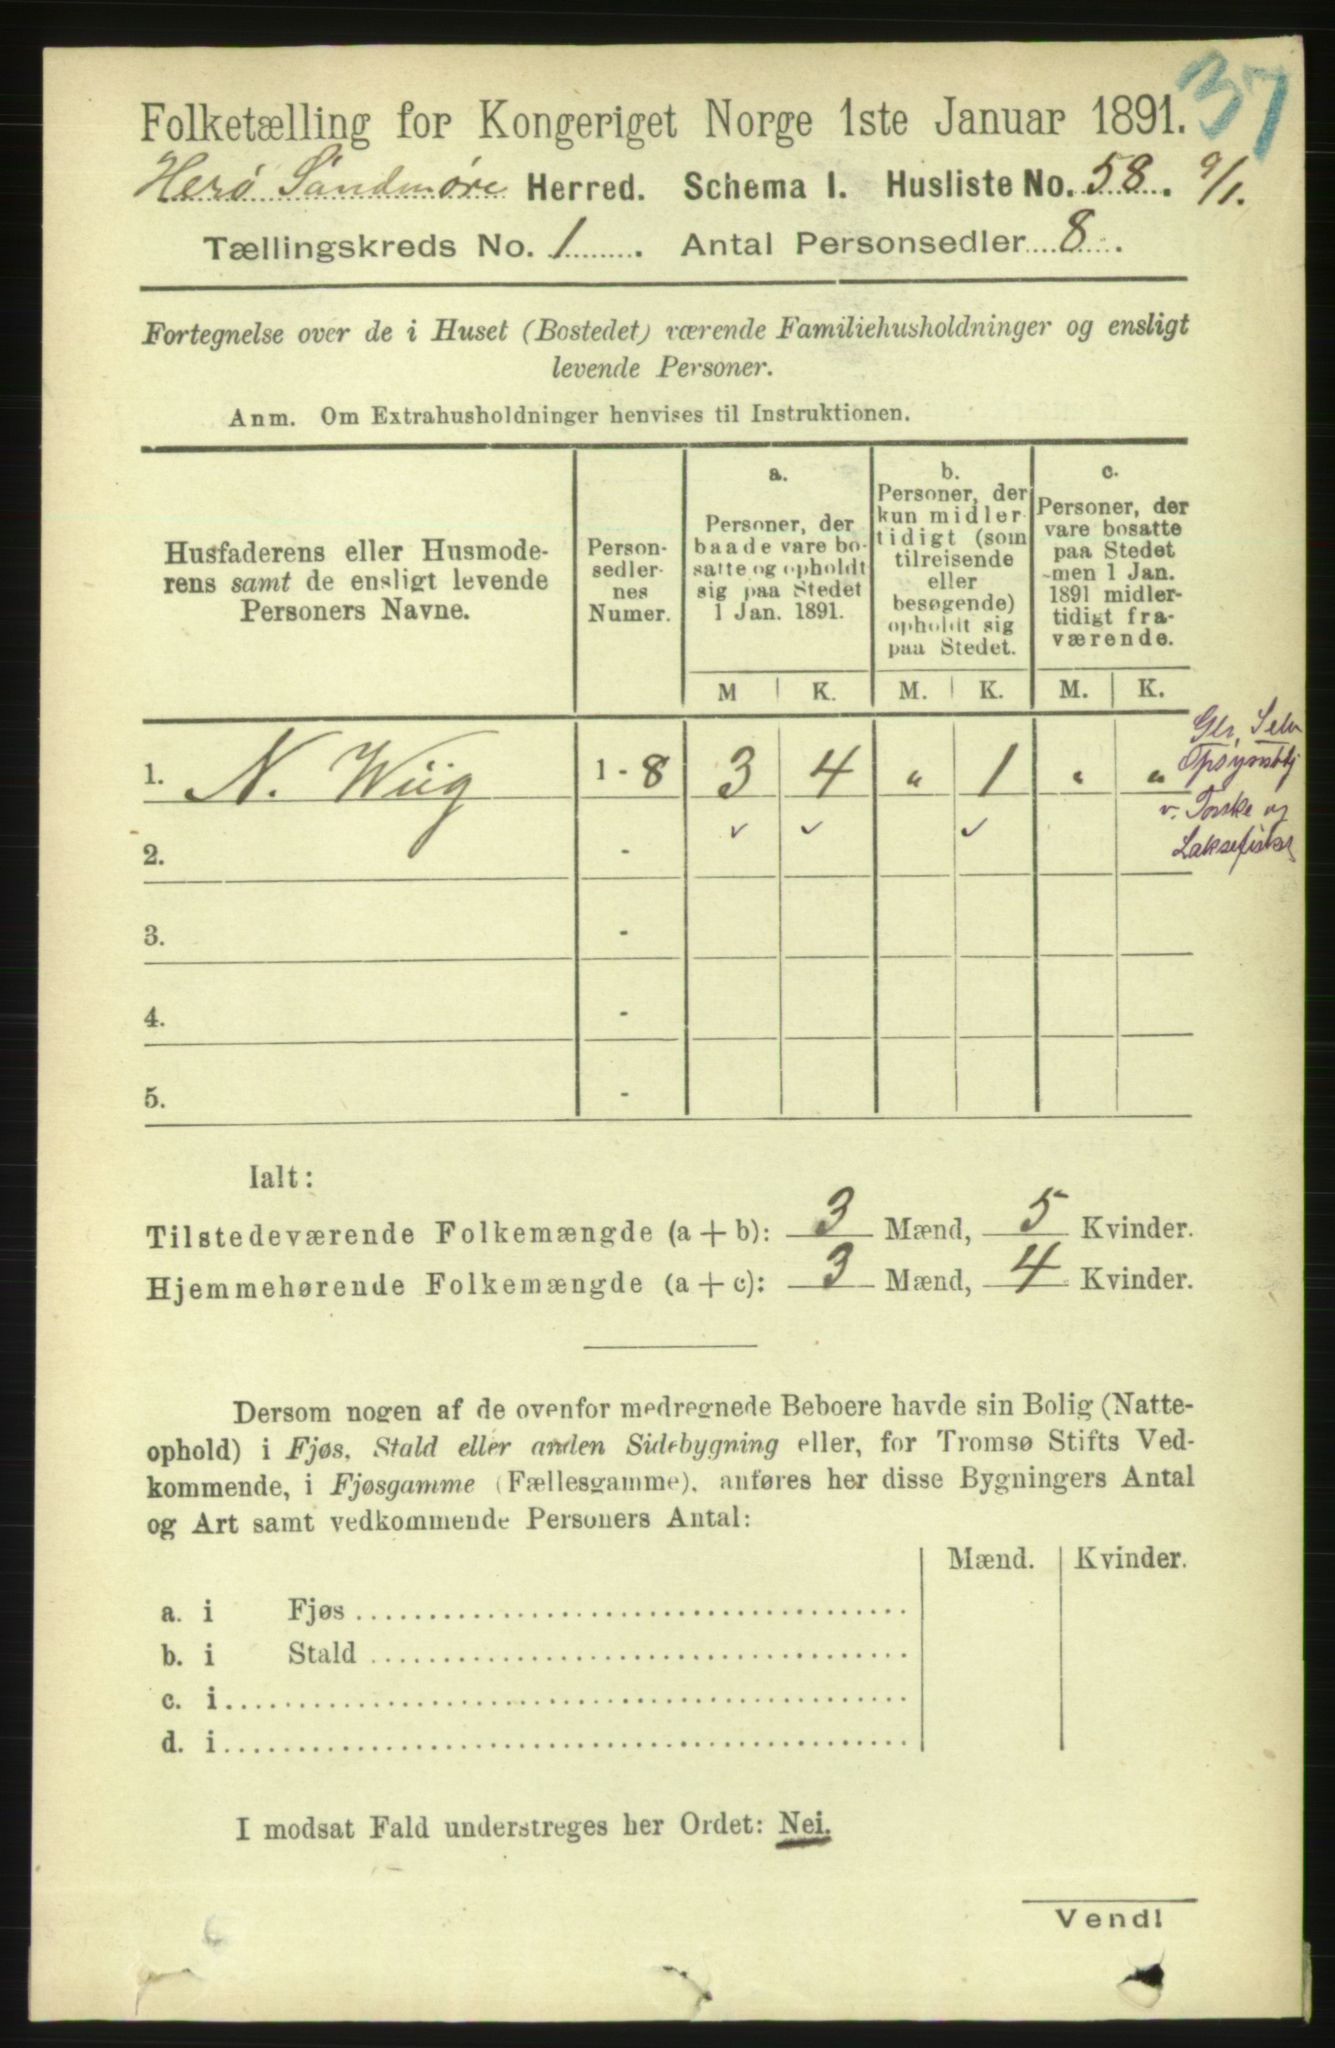 37
Folketælling for Kongeriget Norge 1ste Januar 1891.
Herø Søndmøre Herred. Schema I. Husliste No. 58. 9/1.
Tællingskreds No. 1. Antal Personsedler 8.
Fortegnelse over de i Huset (Bostedet) værende Familiehusholdninger og ensligt
levende Personer.
Anm. Om Extrahusholdninger henvises til Instruktionen.
Husfaderens eller Husmode-
rens samt de ensligt levende
Personers Navne.
Person-
sedler-
nes
Numer.
a.
Personer, der
baade vare bo-
satte og opholdt
sig paa Stedet
1 Jan. 1891.
b.
Personer, der
kun midler-
tidigt (som
tilreisende
eller
besøgende)
opholdt sig
paa Stedet.
c.
Personer, der
vare bosatte
paa Stedet
men 1 Jan.
1891 midler-
tidigt fra-
værende.
M K. M. K. M. K.
1. N. Wiig 1 - 8 3 4 " 1 " "
Selv
v. Torske og
2. - ✓ ✓ ✓
3. -
4. -
5. -
Ialt:
Tilstedeværende Folkemængde (a + b): 3 Mænd, 5 Kvinder.
Hjemmehørende Folkemængde (a + c): 3 Mænd, 4 Kvinder.
Dersom nogen af de ovenfor medregnede Beboere havde sin Bolig (Natte-
ophold) i Fjøs, Stald eller anden Sidebygning eller, for Tromsø Stifts Ved-
kommende, i Fjøsgamme (Fællesgamme), anføres her disse Bygningers Antal
og Art samt vedkommende Personers Antal:
Mænd. Kvinder.
a. i Fjøs
b. i Stald
c. i
d. i
I modsat Fald understreges her Ordet: Nei.
Vend!